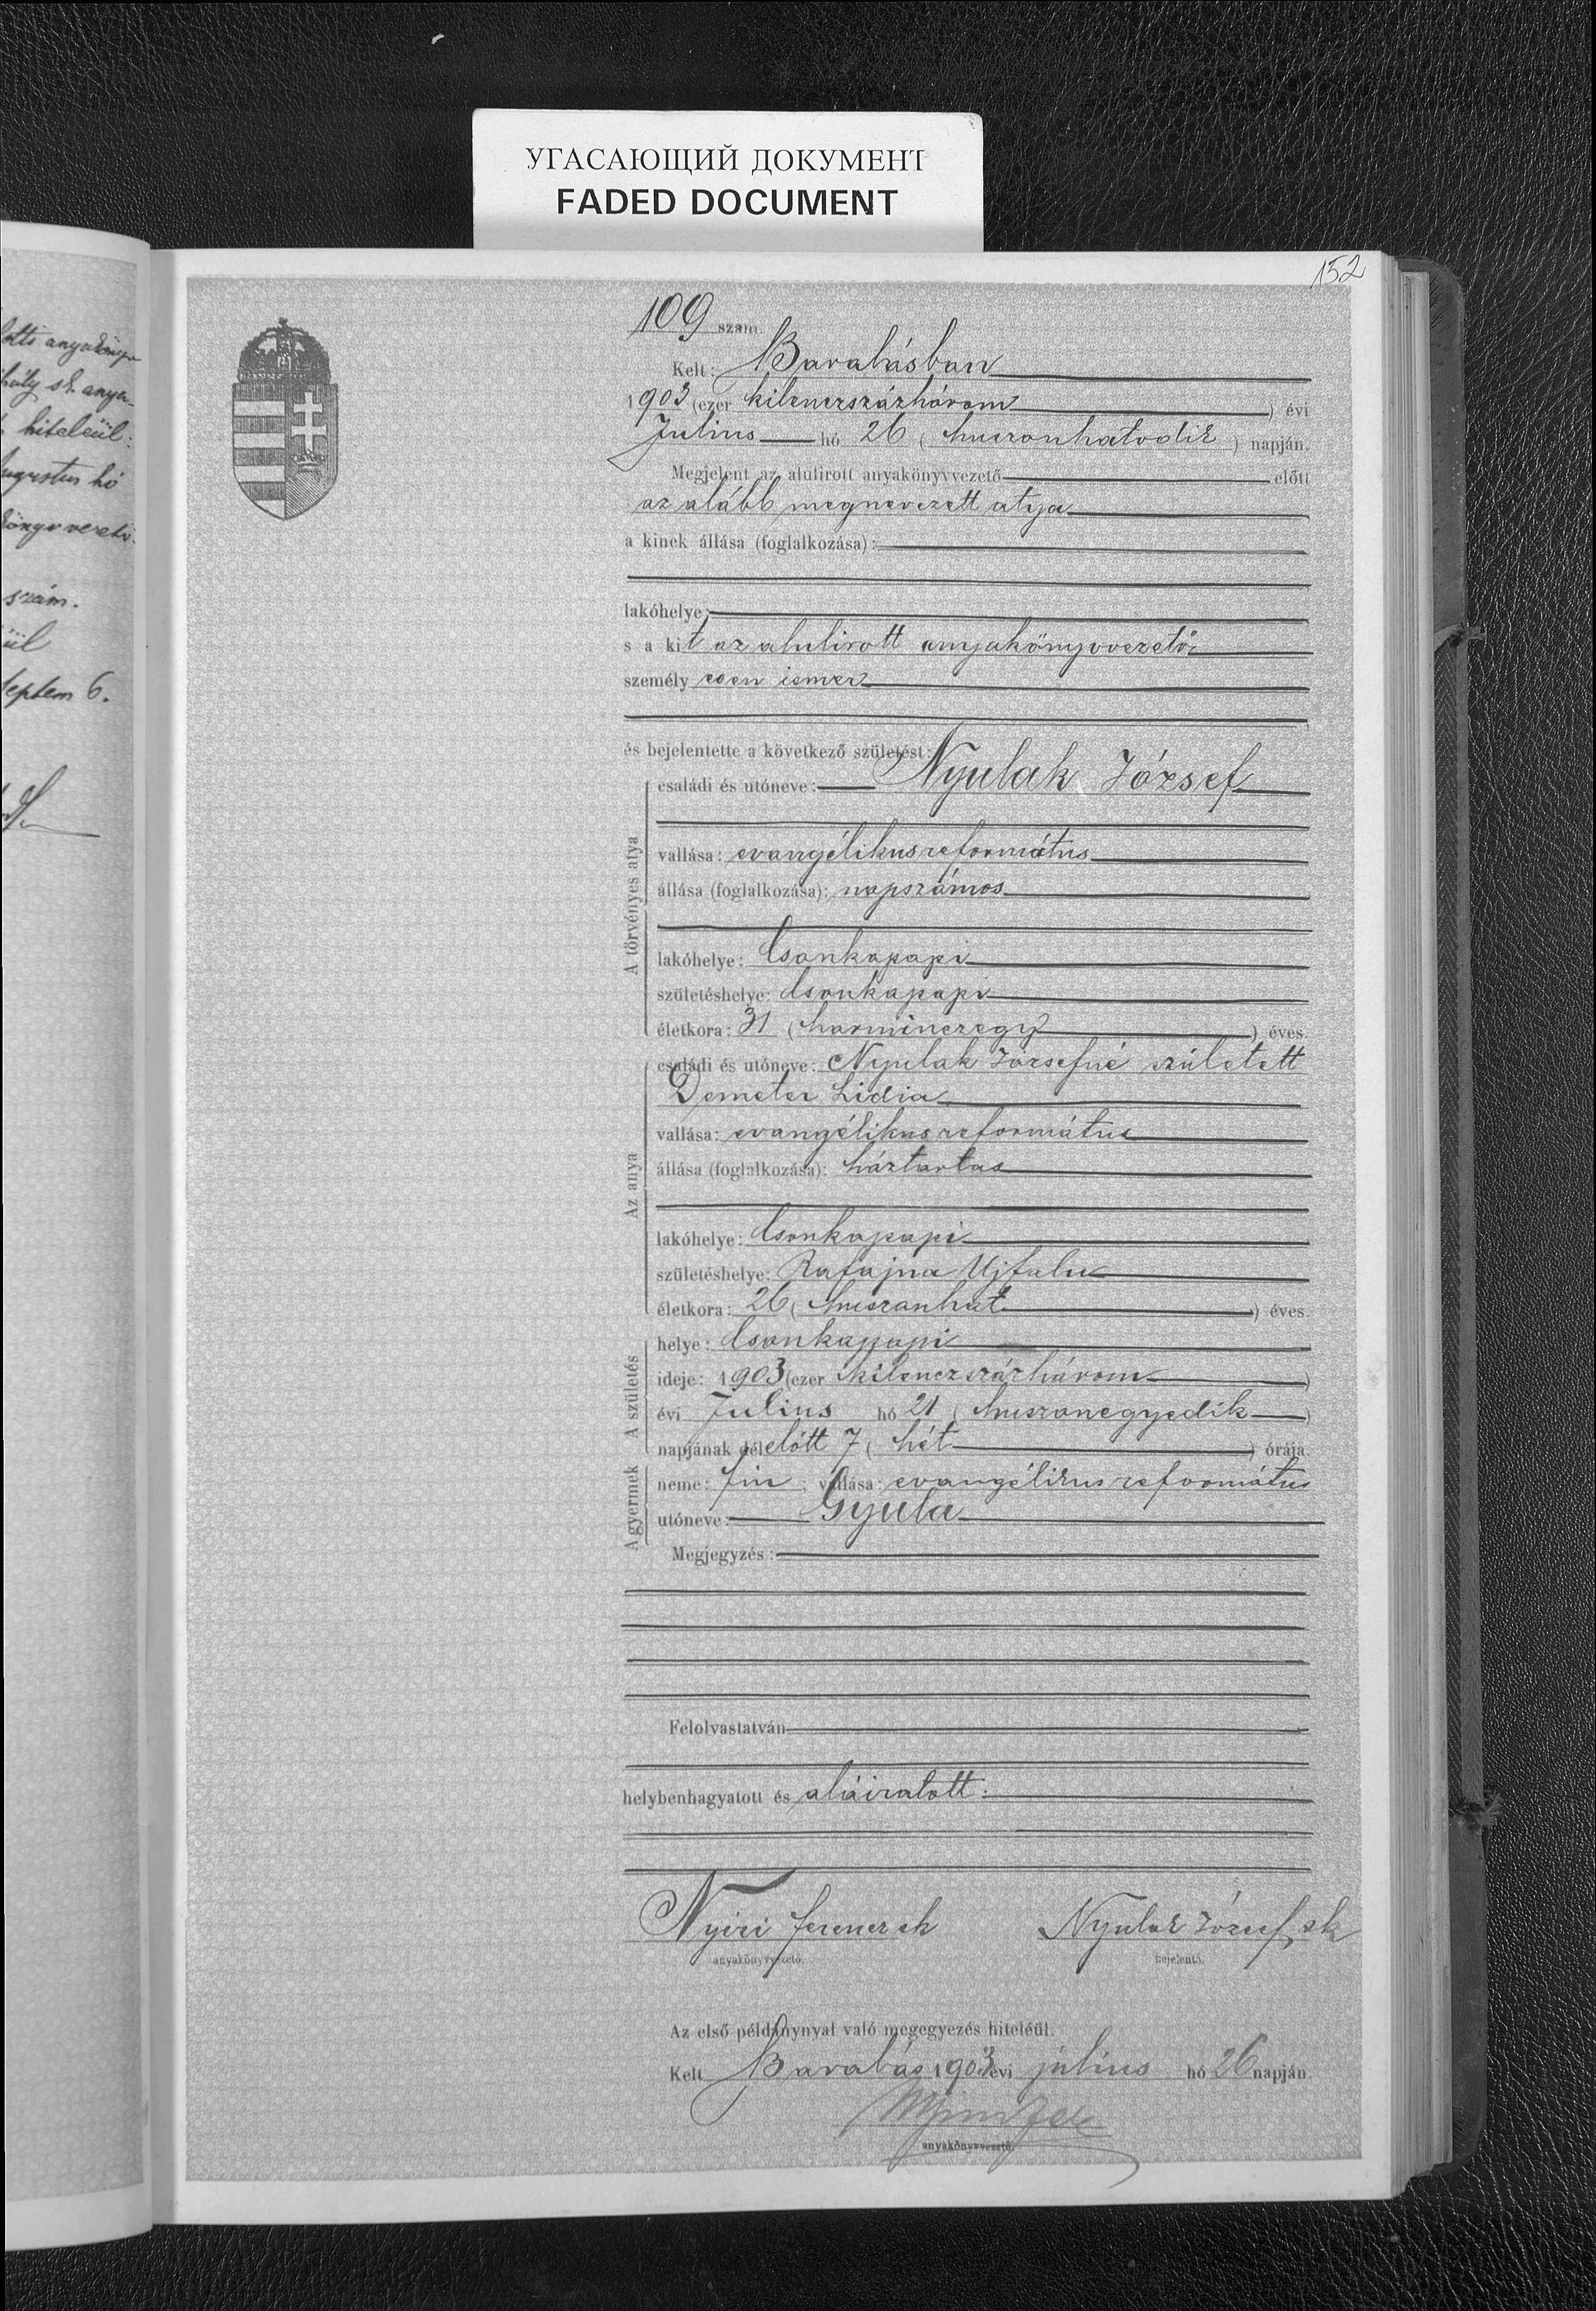 УГАСАЮЩИЙ ДОКУМЕНТ
FADED DOCUMENT
152
109 szám.
Kelt: Barabásban
1903 (ezer kilenczszázhárom ) évi
Julius hó 26 (huszonhatodik ) napján.
Megjelent az alulirott anyakönyvvezető előtt
az alább megnevezett atya
a kinek állása (foglalkozása):
lakóhelye:
s a kit az alulirott anyakönyvvezető
személy esen ismer
és bejelentette a következő születést:
A törvényes atya
családi és utóneve: Nyulak József
vallása: evangélikusreformátus
állása (foglalkozása): napszámos
lakóhelye: Csonkapapi
születéshelye: Csonkapapi
életkora: 31 (harminczegy ) éves.
Az anya
családi és utóneve: Nyulak Józsefné született
Demeter Lidia
vallása: evangélikusreformátus
állása (foglalkozása): háztartas
lakóhelye: Csonkapapi
születéshelye: Rafajna Ujfalu
életkora: 26 (huszonhat ) éves.
A születés
helye: Csonkapapi
ideje: 1903 (ezer kilenczszázhárom )
évi Julius hó 21 (huszonegyedik )
napjának délelőtt 7 (hét ) órája.
A gyermek
neme: fiu ; vallása: evangélikusreformátus
utóneve: Gyula
Megjegyzés:
Felolvastatván
helybenhagyatott és aláiratott:
Nyiri Ferencz sk Nyulak József sk
anyakönyvvezető. bejelentő.
Az első példánynyal való megegyezés hiteléül.
Kelt Barabás 1903 évi július hó 26 napján.
anyakönyvvezető.
hiteléül:
szám.
ül
Septem 6.